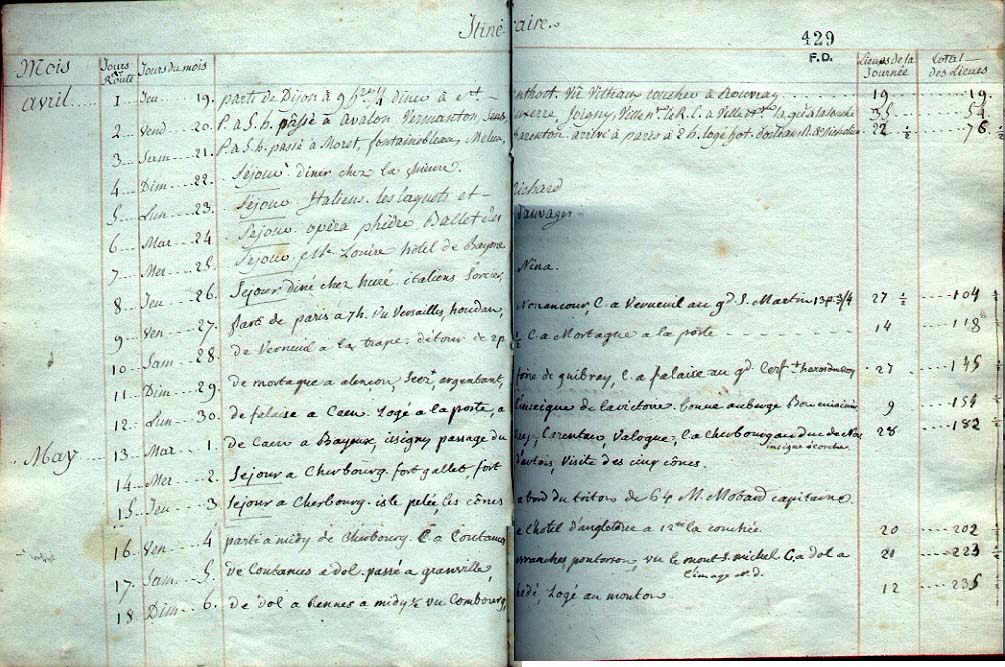 Itinéraire.
429
F.D.
Mois Jours de Route Jours du mois Lieues de la Journée total des Lieues
avril 1 Jeu 19. parti de Dijon à 9 h diner à Vitteaux coucher à Rouvray 19 19.
2 Vend 20. P. a 5 h. passé à avalon Vermanton, Joigny, 35 54
3 Sam 21. P. a 5 h. passé à Moret, fontainebleau, Melun, Charenton arrivé à paris à 2 h. logé hot. d'orleans R. de Richelieu 22 ½ 76 ½
4 Dim 22. Séjour diner chez la Richard
5 Lun 23. Séjour Italiens. les
6 Mar 24 Séjour opéra phèdre Ballet des Sauvages
7 Mer 25. Séjour Mlle Louise hôtel de Bayonne
8 Jeu 26. Séjour diné chez huré. italiens Sorcier, Nina.
9 Ven 27. parti de paris à 7 h. vu Versailles, houdan, Nonancour, C. a Verneuil au gd. S. Martin 13 p. 3/4 27 ½ 104 ½
10 Sam 28. de Verneuil a la trape. détour de 2 p. ½ C. a Mortagne a la poste 14 118 ½
11 Dim 29. de mortagne a alencon Seez argentant, foire de guibray, C. a falaise au gd. Cerf 27 145 ½
12 Lun 30. de falaise a Caen. Logé a la poste, a de la victoire bonne auberge 9 154 ½
May 13 Mar 1. de Caen a Bayeux, issigny passage du Carentan, Valogne, C. a Cherbourg au duc de 28 182 ½
14 Mer 2. Sejour a Cherbourg. fort gallet, fort d'artois, Visite des cinq cônes.
15 Jeu 3 Sejour a Cherbourg. isle pelée, les cônes a bord du triton de 64 M. Mobard capitaine
16 Ven 4 parti a midy de Cherbourg. C. a Coutances a l'hotel d'angleterre a la couchée 20 202 ½
17. Sam 5. de Coutances a dol. passé a granville, avranches pontorson, vu le mont S. michel C. a dol a l'image n.d. 21 223 ½
18 Dim 6. de dol a Rennes a midy ½ vu Combourg, hedé, Logé au mouton 12 235 ½